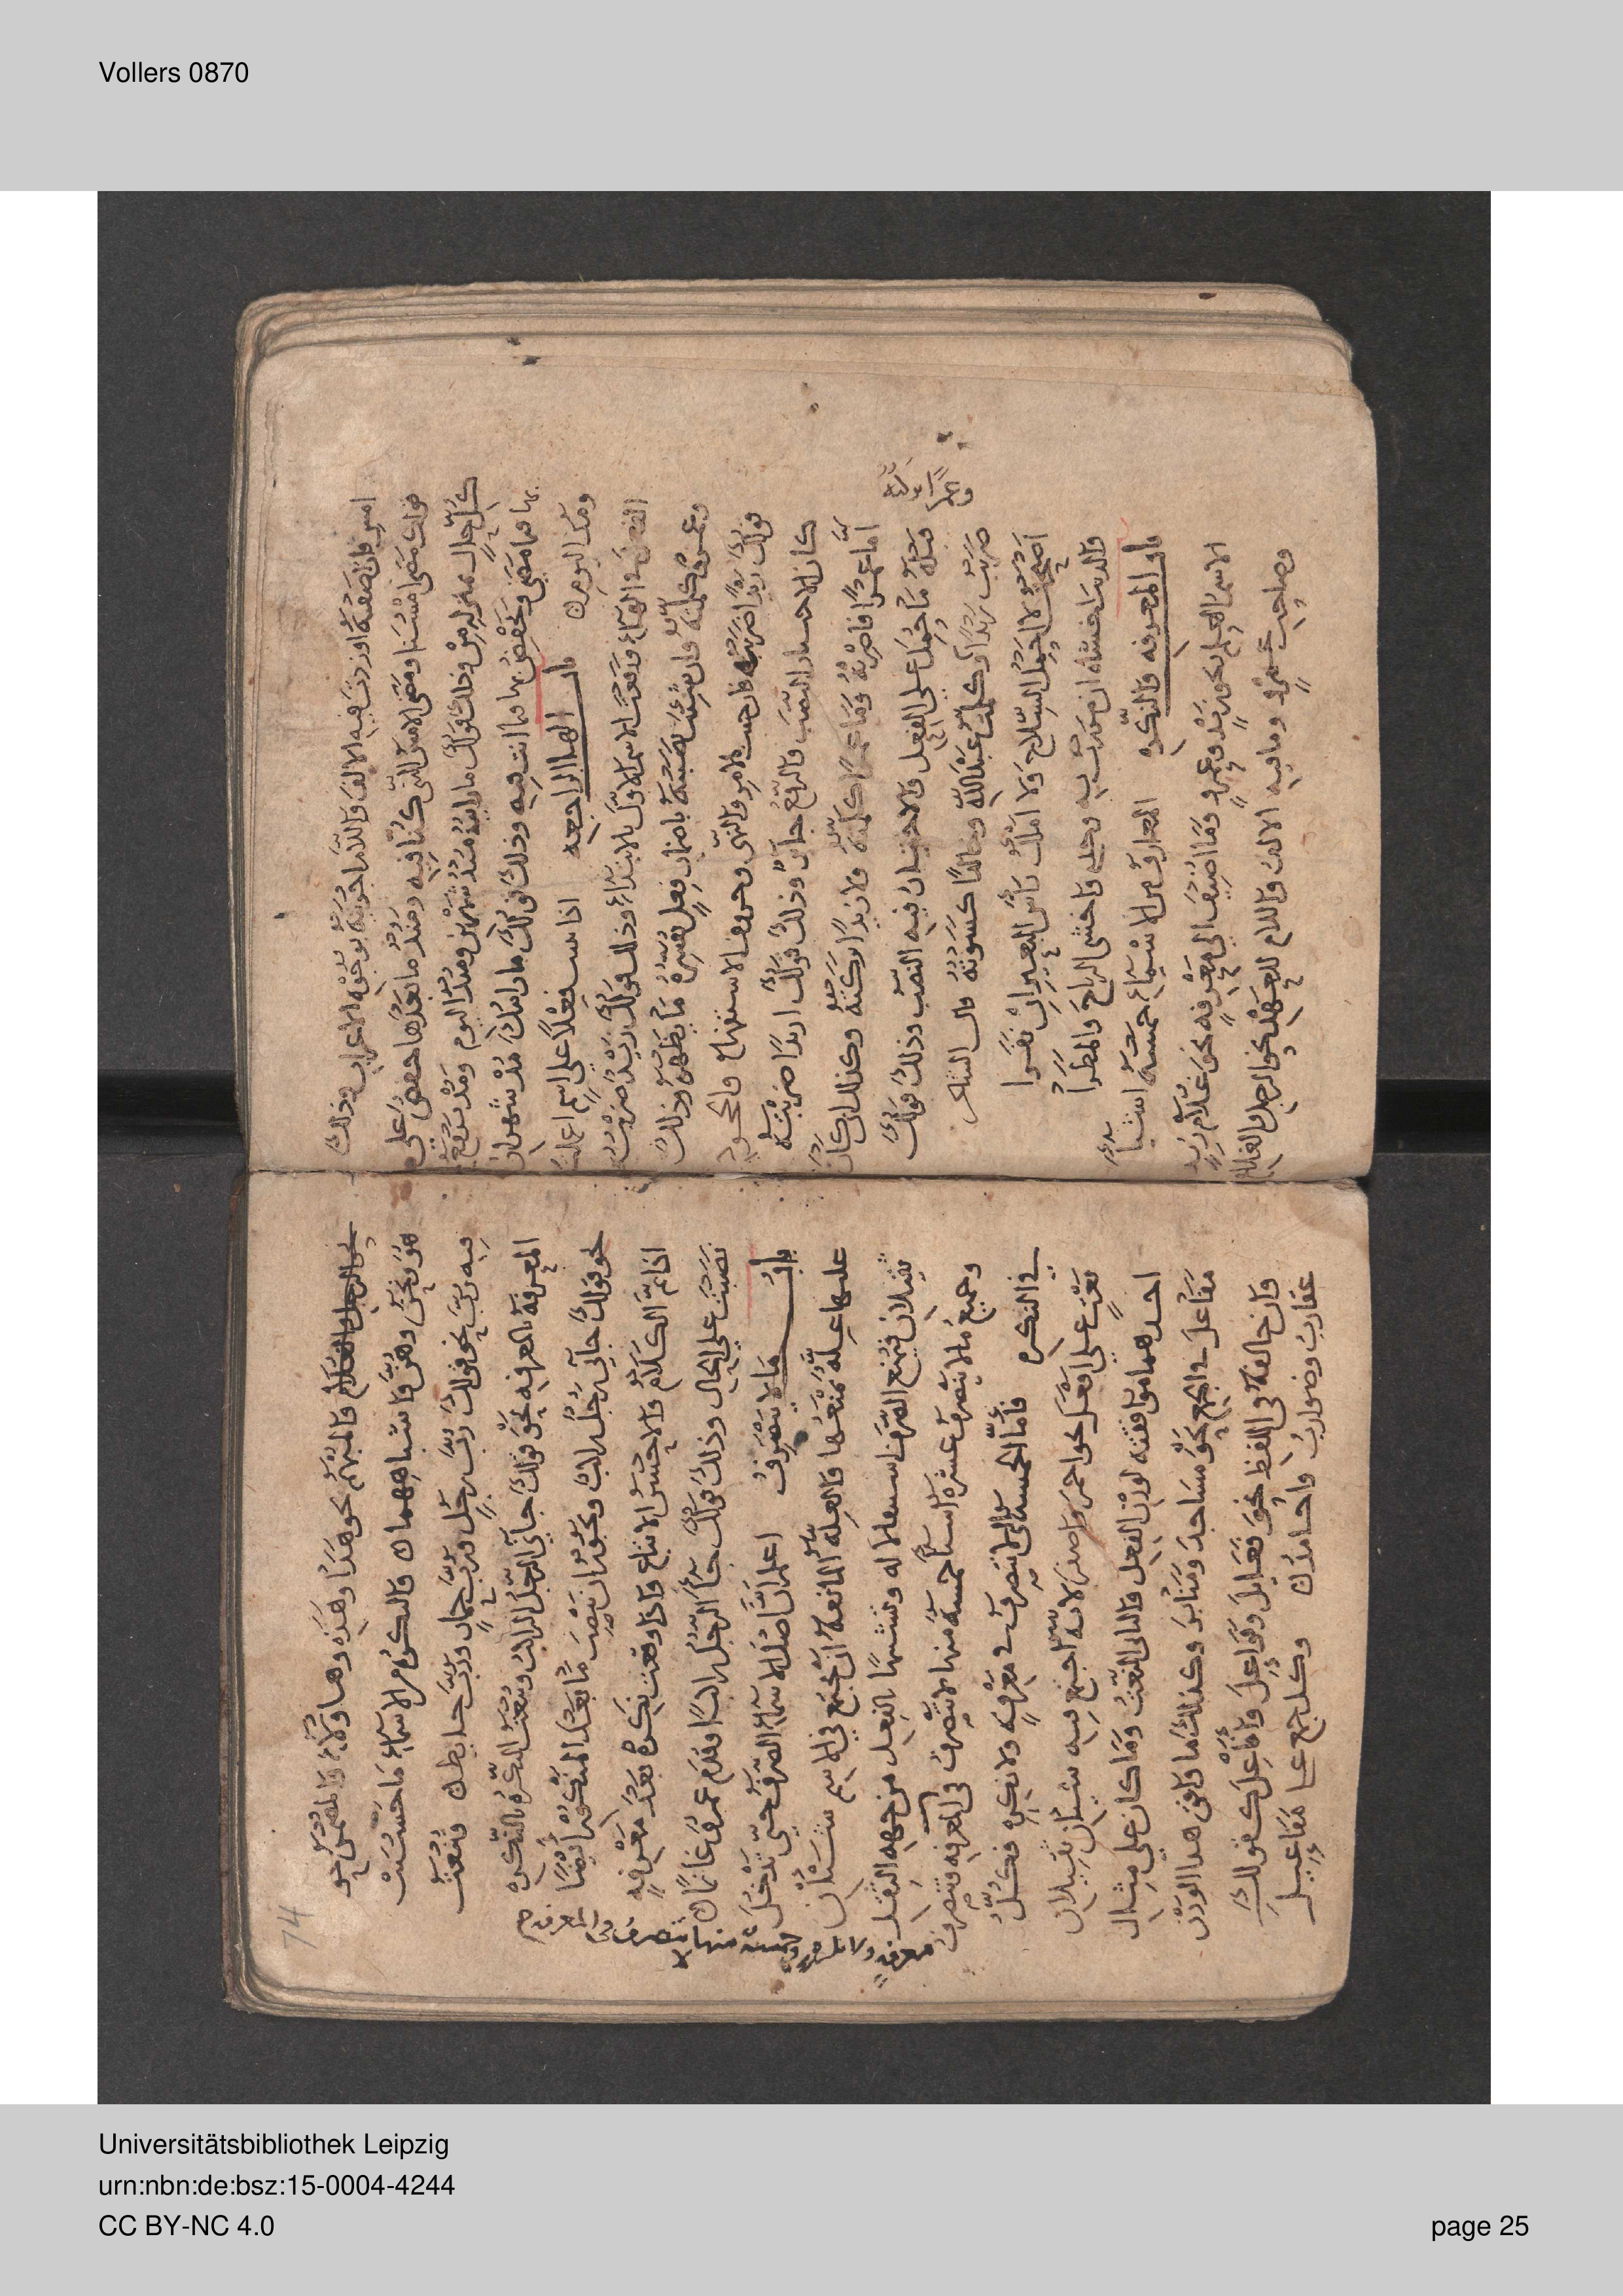 Vollers 0870
امس فان صغته او زدت فيه الالف واللام اجريته بوجوه الاعراب وذلك
قولك مضى امسنا ومضى الامس الذي كنا فيه ومنذ ما بعدها خفض على
كل حال وذلك قولك ما رايته منذ شهرين ومنذ اليوم ومذ ترفع
بها ما مضى وتخفض بها ما انت فيه وذلك قولك ما رايتك مذ شهران
ومذ اليوم باب الهاء الراجعة اذا فعلا على اسم
الفعل في الهاء ورفعت الاسم الاول بالابتداء وذلك قولك زيد ضربته
وعمرو كلمته وان شئت نصبته باضمار فعل يفسره ما يظهر وذلك
قولك زيدا ضربته فان جئت بالامر والنهي وحروف الاستفهام والجحود
كان الاختيار النصب والرفع جائز وذلك قولك ازيدا ضربته
اما عمرا فاضربه وما عمرا كلمته ولا زيدا تركته وكذلك ان كان
قبله ما حمل على الفعل فالاختيار فيه النصب وذلك قولك
ضربت زيدا وكلمت عبدالله وخالدا كسوته قال الشاعر
اصبحت لا احمل السلاح ولا املك راس البعير ان نفرا
والذئب اخشاه ان مررت به وحدي واخشى الرياح والمطرا
باب المعرفة والنكرة المعارف من الاسماء خمسة اشيا
الاسم العلم نحو زيد وعمرو وما اضيف الى معرفة نحو غلام زيد
وصاحب عمرو وما فيه الالف واللام للعهد نحو الرجل والغلام
74
نحو الرجل والغلام والمبهم نحو هذا وهذه وهاولاء والمضمر نحو
هو ونحن وهن وما شباههما والنكرة من الاسماء ما حسنت
فيه رب نحو قولك رب رجل ورب جمل ورب حايط وتنعت
المعرفة بالمعرفة نحو قولك جاني الرجل الراكب وتنعت النكرة بالنكرة
نحو قولك جاني رجل راكب ويجوز ان تنصب ما بعد النكرة ايضا
اذا تم الكلام والاحسن الاتباع واذا وقعت نكرة بعد معرفة
نصبت على الحال وذلك قولك جا الرجل راكبا وقدم عمرو غانما
باب ما لا ينصرف اعلم ان اصل الاسماء الصرف حتى تدخل
عليها علة تمنعها والعلة المانعة ان تجتمع في الاسم شيئان
ثقيلان فيمنع الصرف استعمالا له وتشبيها بالفعل من جهة الثقل
وجميع ما لا ينصرف عشرة اسما خمسة منها لا تنصرف في المعرفة وتنصرف
في النكرة فاما الخمسة التي لا تنصرف في معرفة ولا نكرة فكل
نعت على افعل نحو احمر واصفر لانه اجتمع فيه شيئان ثقيلان
احدهما موافقته لوزن الفعل والثاني النعت وما كان على مثال
مفاعل في الجمع نحو مساجد ومنابر وكذلك ما وافق هذا الوزن
وان خالفه في اللفظ نحو فعايل وفواعل وافاعل كقولك
عقارب وضوارب واحامد وكل جمع على مفاعيل
وخمسة منها لا تنصرف في
Universitätsbibliothek Leipzig
urn:nbn:de:bsz:15-0004-4244
CC BY-NC 4.0
page 25